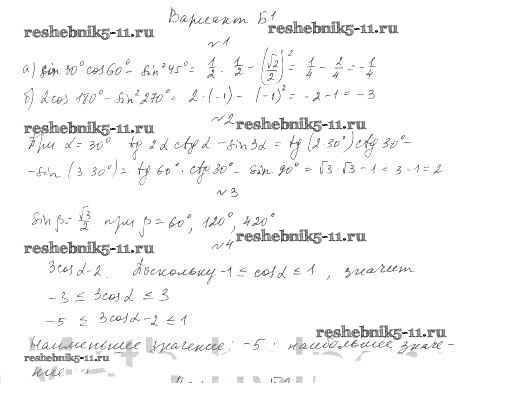 Вариант Б1
reshebnik5-11.ru
reshebnik5-11.ru
№1
а) sin 30° cos 60° - sin² 45° = 1/2 · 1/2 - (√2/2)² = 1/4 - 2/4 = -1/4
б) 2cos 180° - sin² 270° = 2·(-1) - (-1)² = -2-1 = -3
№2
reshebnik5-11.ru
reshebnik5-11.ru
При α = 30° tg 2α ctg α - sin 3α = tg (2·30°) ctg 30° -
- sin (3·30°) = tg 60° · ctg 30° - sin 90° = √3 · √3 - 1 = 3 - 1 = 2
№3
sin β = √3/2 при β = 60°, 120°, 420°
№4
reshebnik5-11.ru
reshebnik5-11.ru
3cosα-2. Поскольку -1 ≤ cosα ≤ 1, значит
-3 ≤ 3cosα ≤ 3
-5 ≤ 3cosα-2 ≤ 1
reshebnik5-11.ru
Наименьшее значение: -5 наибольшее значе-
reshebnik5-11.ru
ние